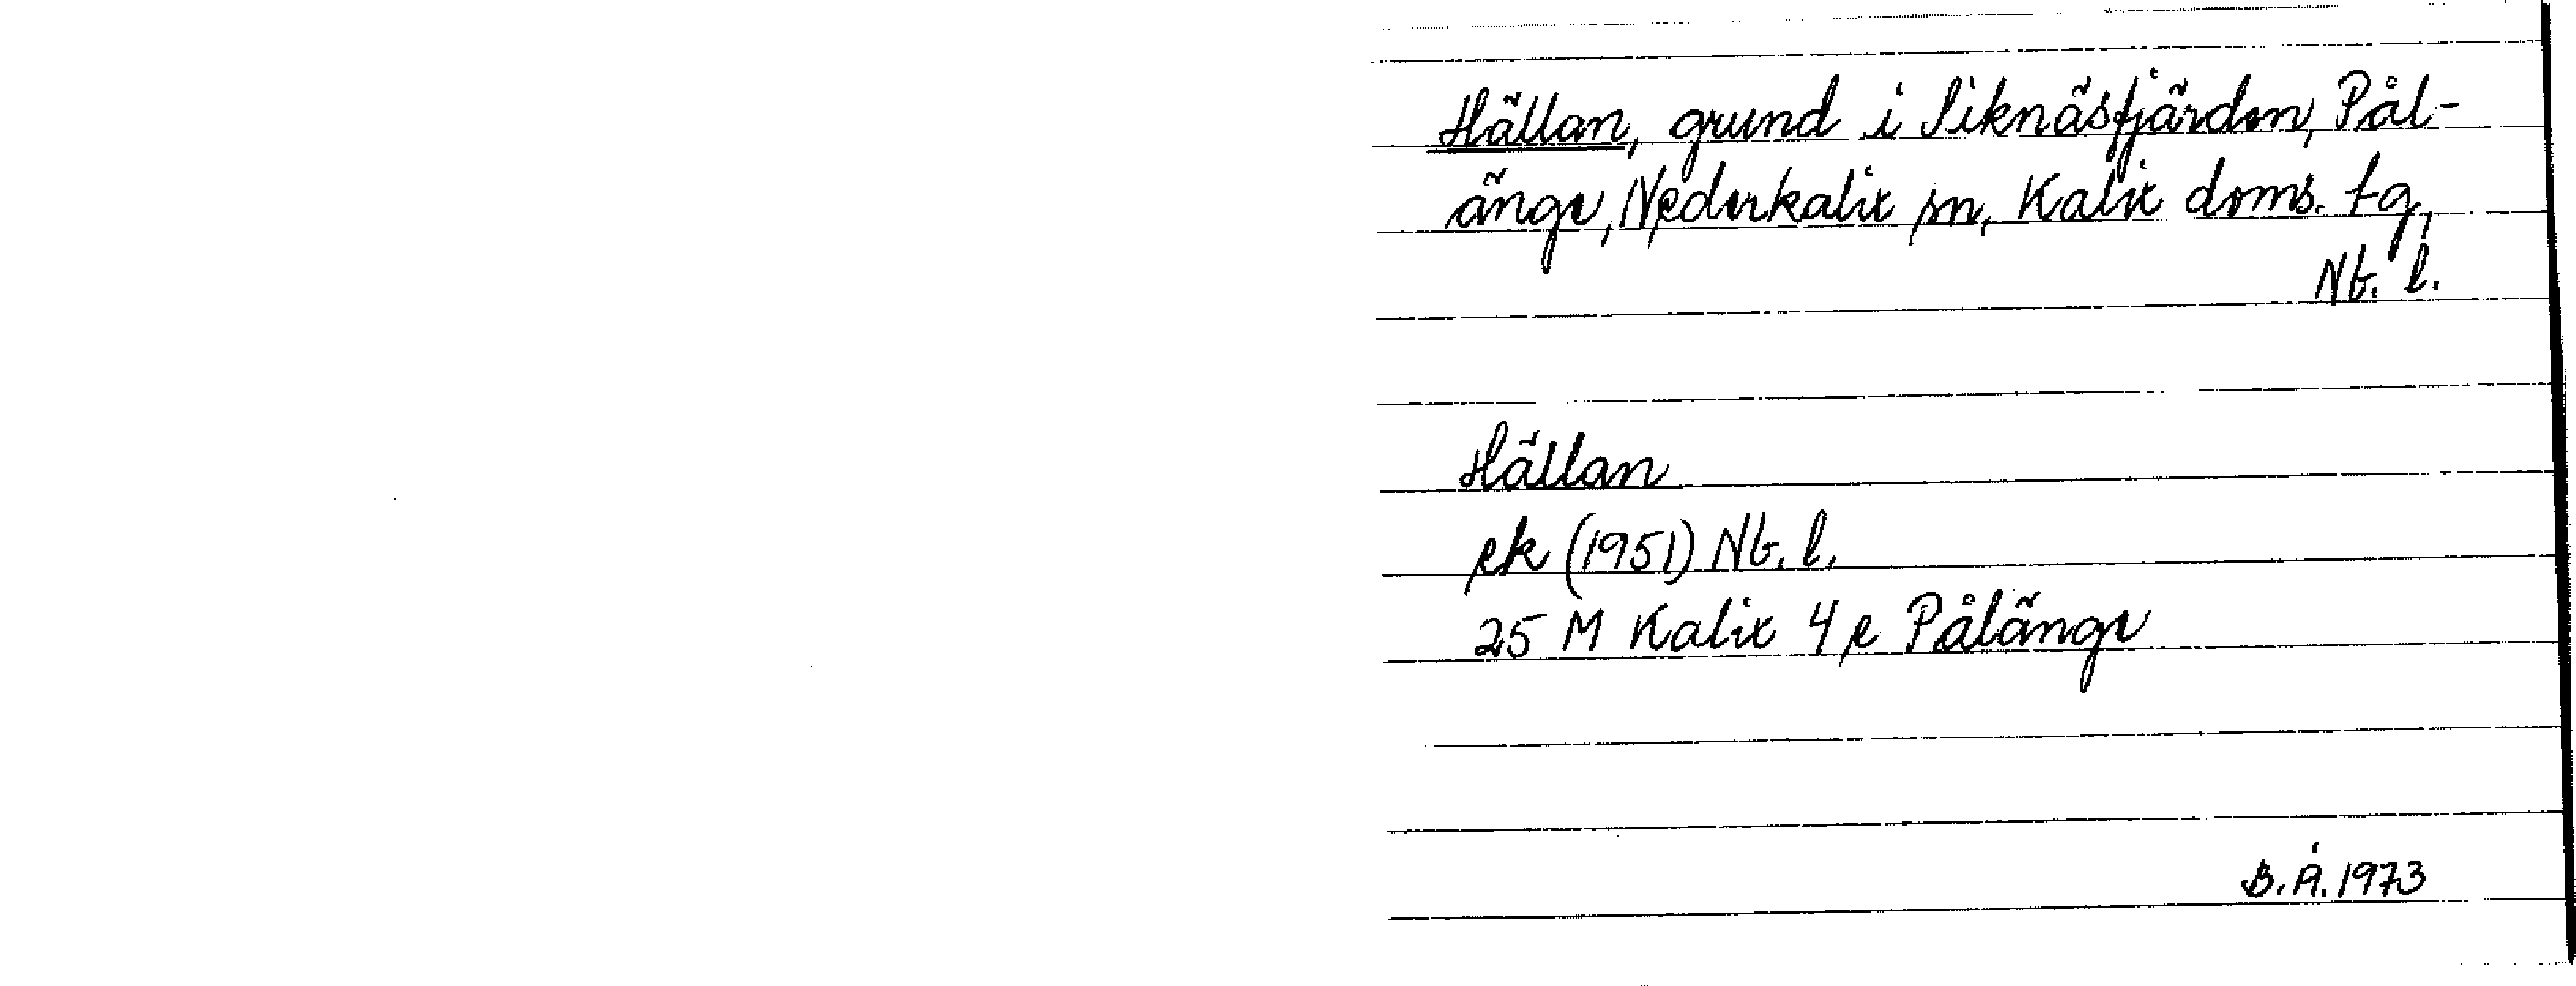 Hällan, grund i Siknäsfjärden, Pål-
änge, Nederkalix sn, Kalix doms. tg,
Nb. l.
Hällan
ek (1951) Nb. l.
25 M Kalix 4 e Pålänge
B. Å. 1973